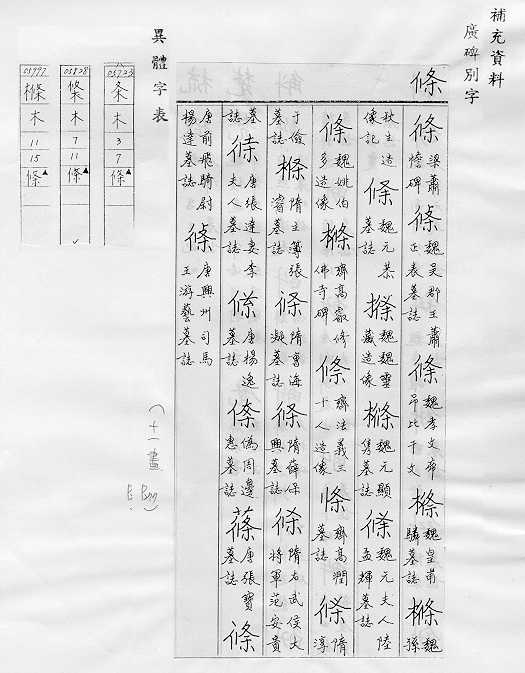 補充資料
廣碑別字
條
條 梁蕭憺碑 條 魏吳郡王蕭正表墓誌 條 魏孝文帝弔比干文 樤 魏皇甫驎墓誌 樤 魏孫
秋生造像記 條 魏元恭墓誌 樤 魏魏靈藏造像 樤 魏元顯雋墓誌 條 魏元夫人陸孟輝墓誌
條 魏姚伯多造像 樤 齊高叡修佛寺碑 條 齊法義三十人造像 條 齊高潤墓誌 條 隋淳
于儉墓誌 樤 隋主簿張濬墓誌 條 隋曹海凝墓誌 條 隋薛保興墓誌 條 隋右武侯大將軍范安貴
墓誌 條 唐張達妻李夫人墓誌 條 唐楊逸墓誌 條 偽周邊惠墓誌 蓧 唐張寶墓誌 條
唐前飛騎尉楊達墓誌 條 唐興州司馬王游藝墓誌
異體字表
05723 条 木 3 7 條▲
05828 木 7 11 條▲
05997 樤 木 11 15 條▲
(十一畫)